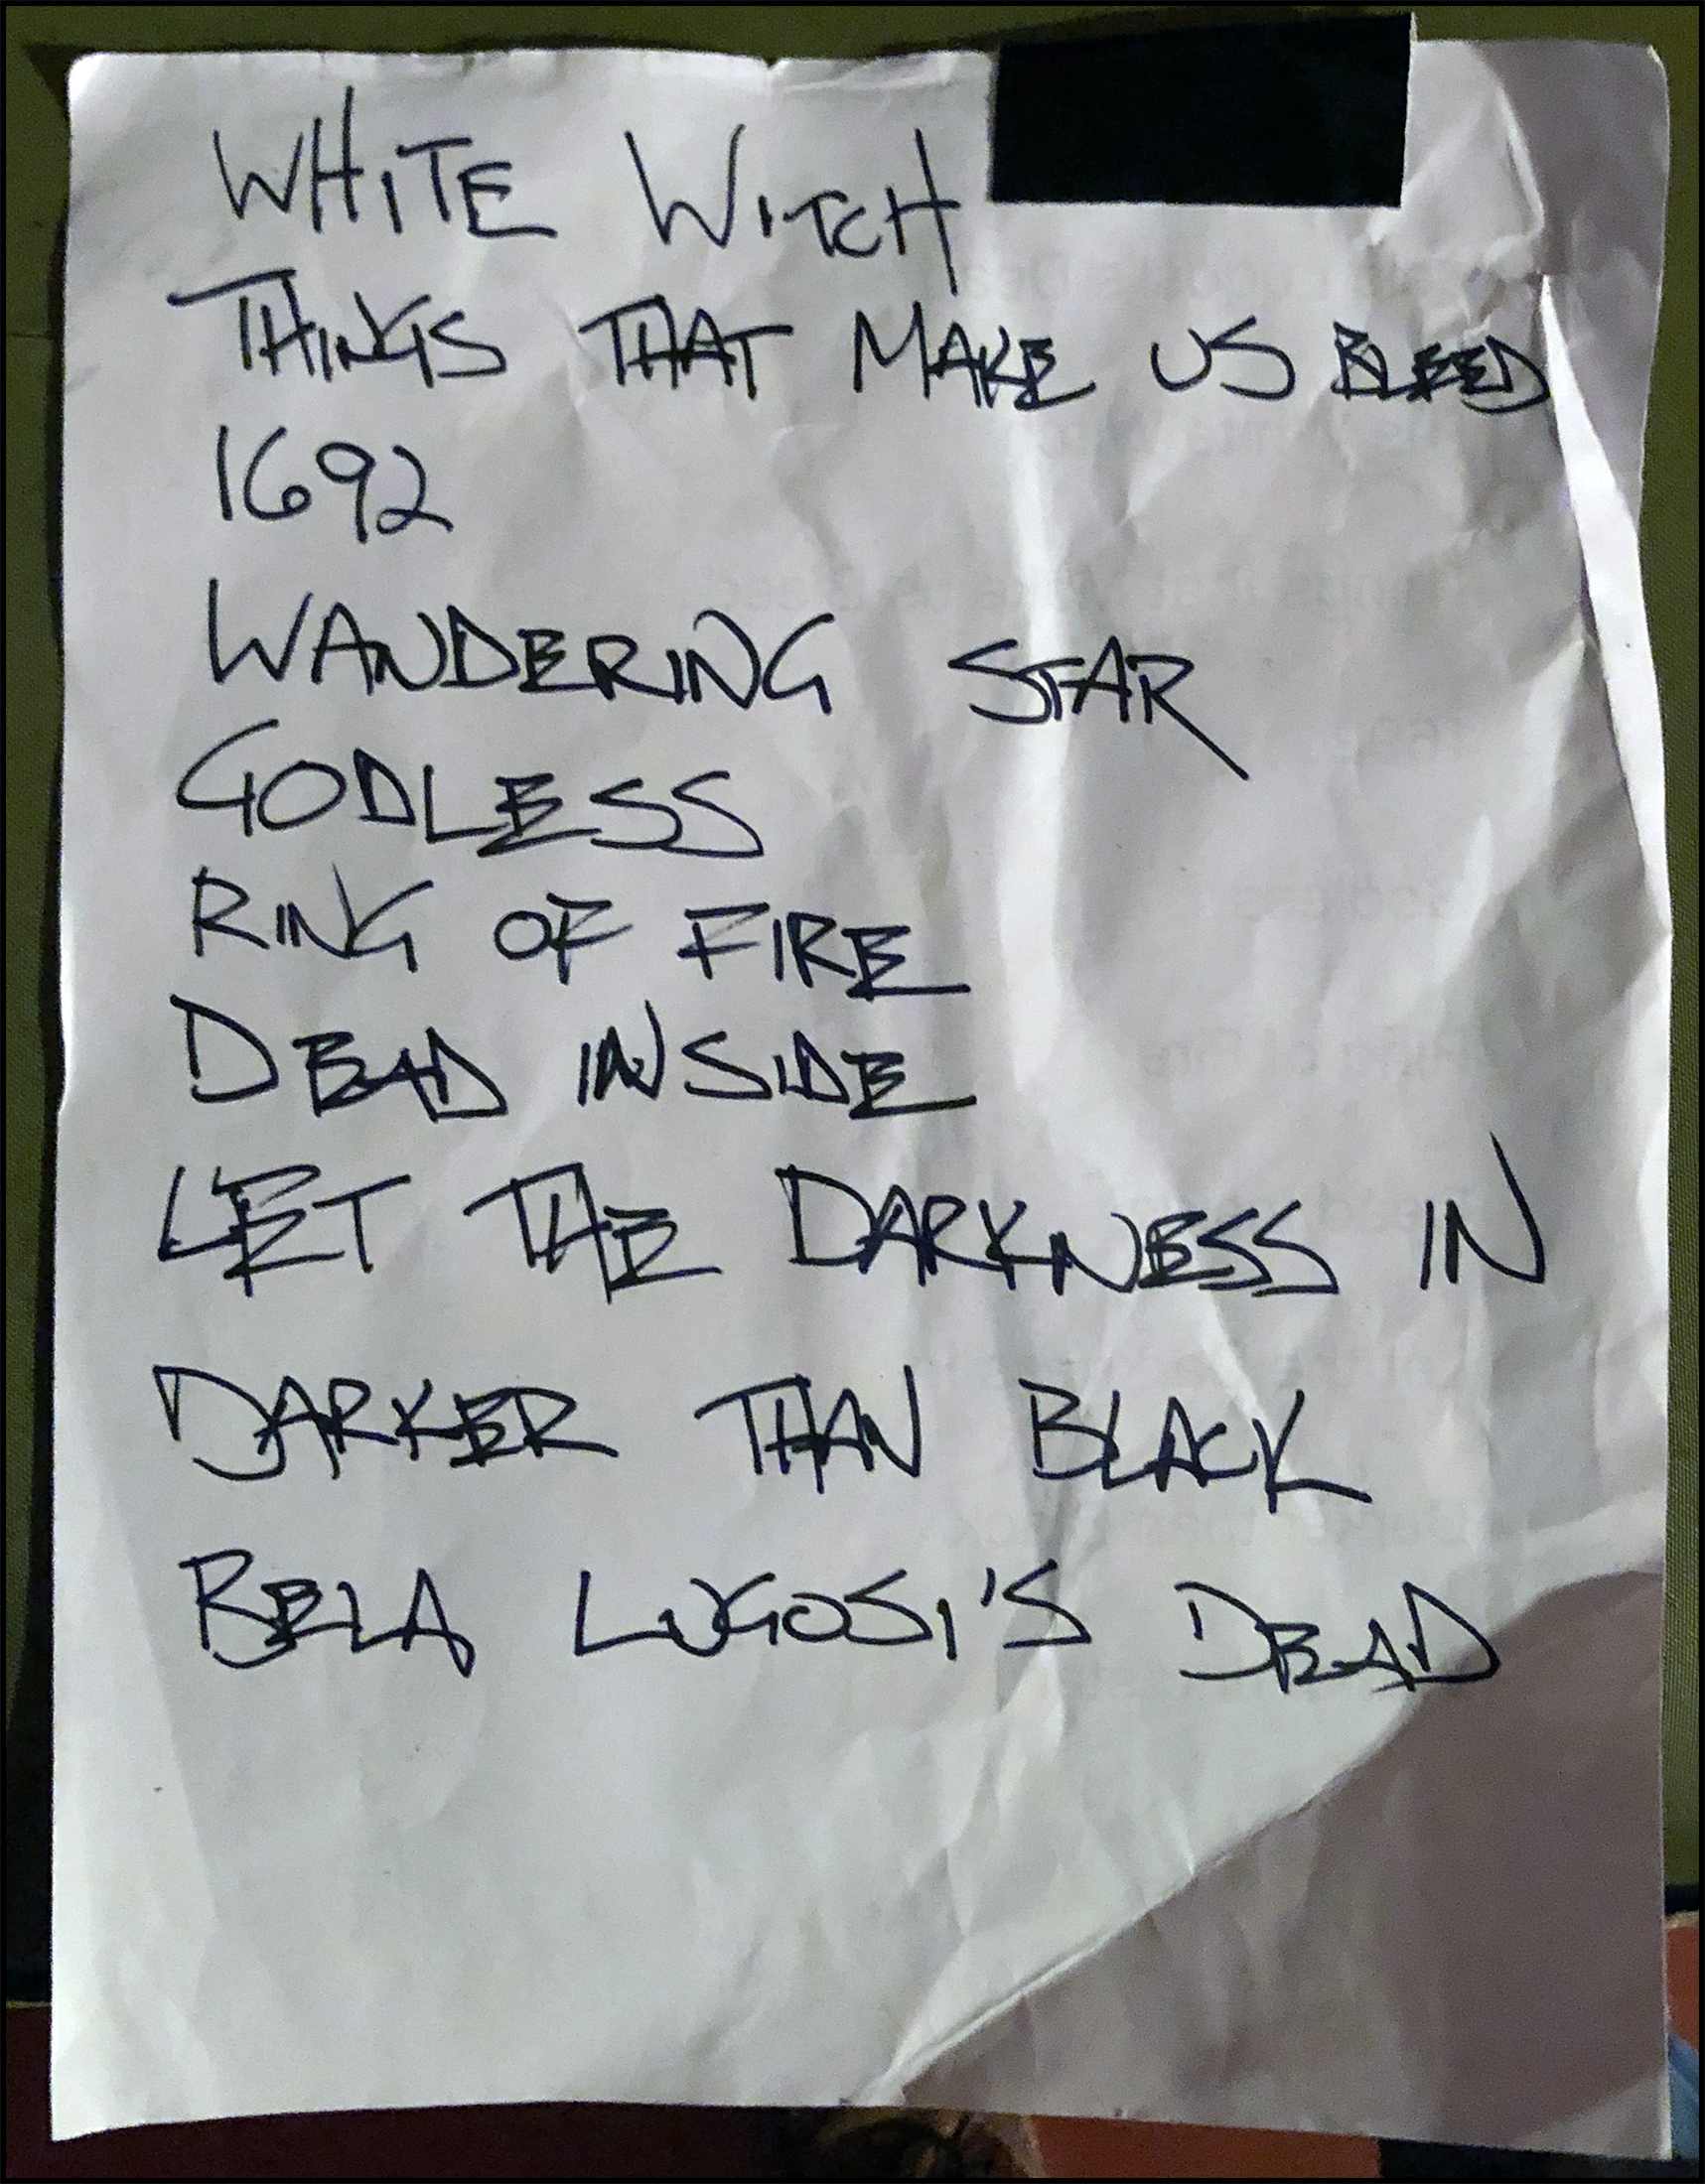 WHITE WITCH
THINGS THAT MAKE US BLEED
1692
WANDERING STAR
GODLESS
RING OF FIRE
DEAD INSIDE
LET THE DARKNESS IN
DARKER THAN BLACK
BELA LUGOSI'S DEAD